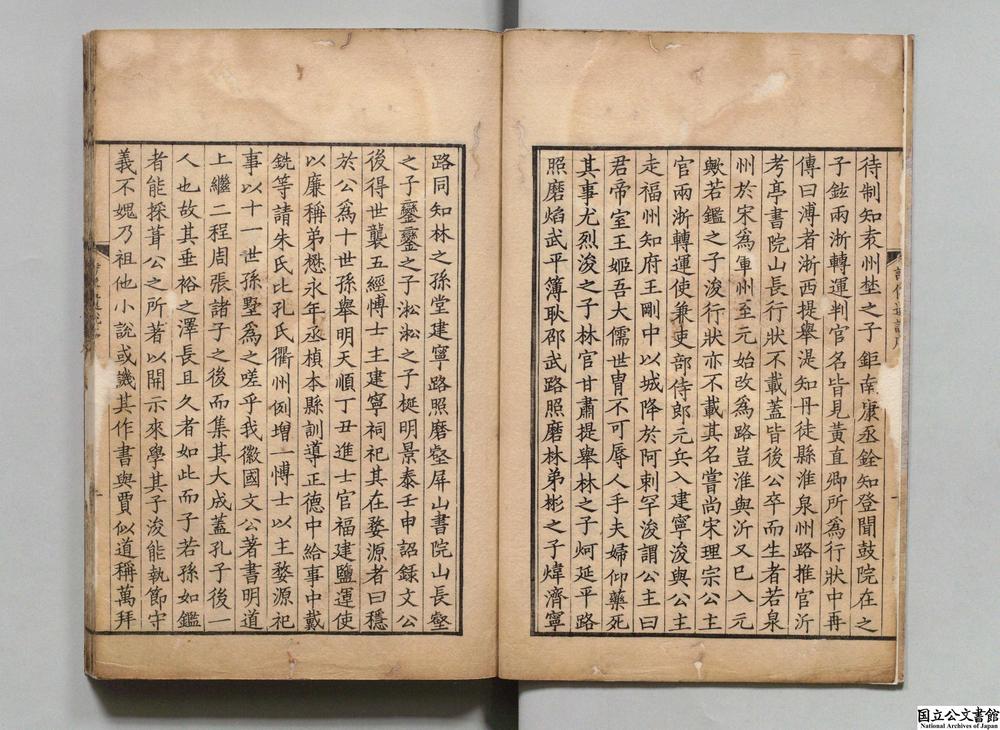 待制知袁州埜之子鉅南康丞銓知登聞鼓院在之
子鉉兩浙轉運判官名皆見黃直卿所為行狀中再
傳曰溥者浙西提舉湜知丹徒縣淮泉州路推官沂
考亭書院山長行狀不載蓋皆後公卒而生者若泉
州於宋爲軍州至元始改爲路豈淮與沂又已入元
歟若鑑之子浚行狀亦不載其名嘗尚宋理宗公主
官兩浙轉運使兼吏部侍郎元兵入建寧浚與公主
走福州知府王剛中以城降於阿剌罕浚謂公主曰
君帝室王姬吾大儒世胄不可辱人手夫婦仰藥死
其事尤烈浚之子林官甘肅提舉林之子炣延平路
照磨焰武平簿耿邵武路照磨林弟彬之子煒濟寧
路同知林之孫堂建寧路照磨壑屏山書院山長壑
之子鑾鑾之子淞淞之子梴明景泰壬申詔録文公
後得世襲五經博士主建寧祠祀其在婺源者曰穩
於公爲十世孫舉明天順丁丑進士官福建鹽運使
以廉稱弟懋永年丞楨本縣訓導正德中給事中戴
銑等請朱氏比孔氏衢州例增一博士以主婺源祀
事以十一世孫墅爲之嗟乎我徽國文公著書明道
上繼二程周張諸子之後而集其大成蓋孔子後一
人也故其垂裕之澤長且久者如此而子若孫如鑑
者能採葺公之所著以開示來學其子浚能執節守
義不媿乃祖他小說或譏其作書與賈似道稱萬拜
国立公文書館
National Archives of Japan